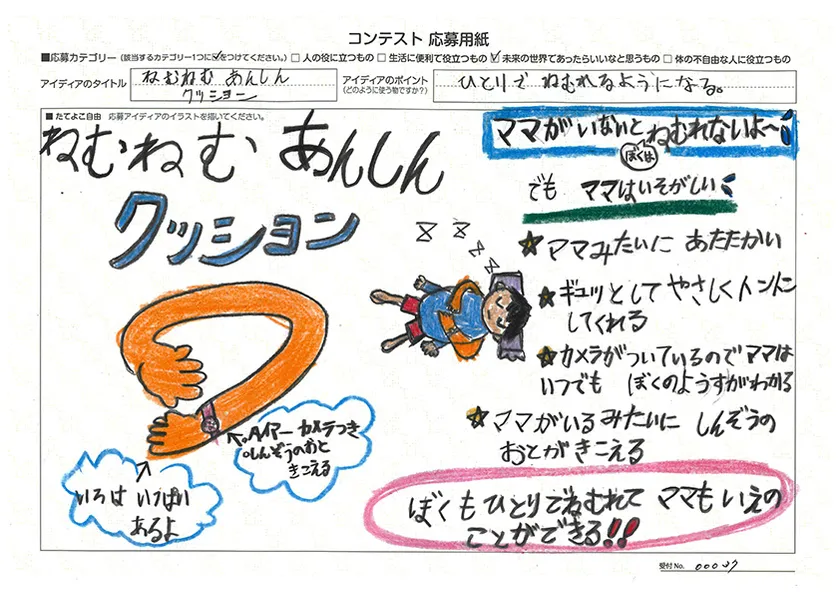 コンテスト 応募用紙
■応募カテゴリー（該当するカテゴリー1つに☑をつけてください。）□ 人の役に立つもの □ 生活に便利で役立つもの ☑ 未来の世界であったらいいなと思うもの □ 体の不自由な人に役立つもの
アイディアのタイトル
ねむねむ あんしん
クッション
アイディアのポイント
（どのように使う物ですか？）
ひとりで ねむれるようになる。
■ たてよこ自由 応募アイディアのイラストを描いてください。
ねむねむ あんしん
クッション
ママがいないと ねむれないよ〜
ぼくは
でも ママはいそがしい
★ママみたいに あたたかい
★ギュッとして やさしくトントン
してくれる
★カメラがついているのでママは
いつでも ぼくのようすがわかる
★ママがいるみたいに しんぞうの
おとがきこえる
zzzz
カメラつき
しんぞうのおと
きこえる
いろは いっぱい
あるよ
ぼくもひとりでねむれて ママもいえの
ことができる!!
受付No. 00037